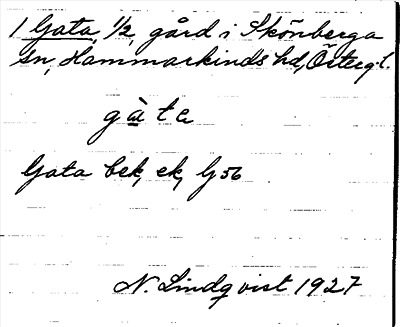 1 Gata, 1/2, gård i Skönberga
sn, Hammarkinds hd, Östergl.
gàta
Gata bek, ek, G56
N. Lindqvist 1927